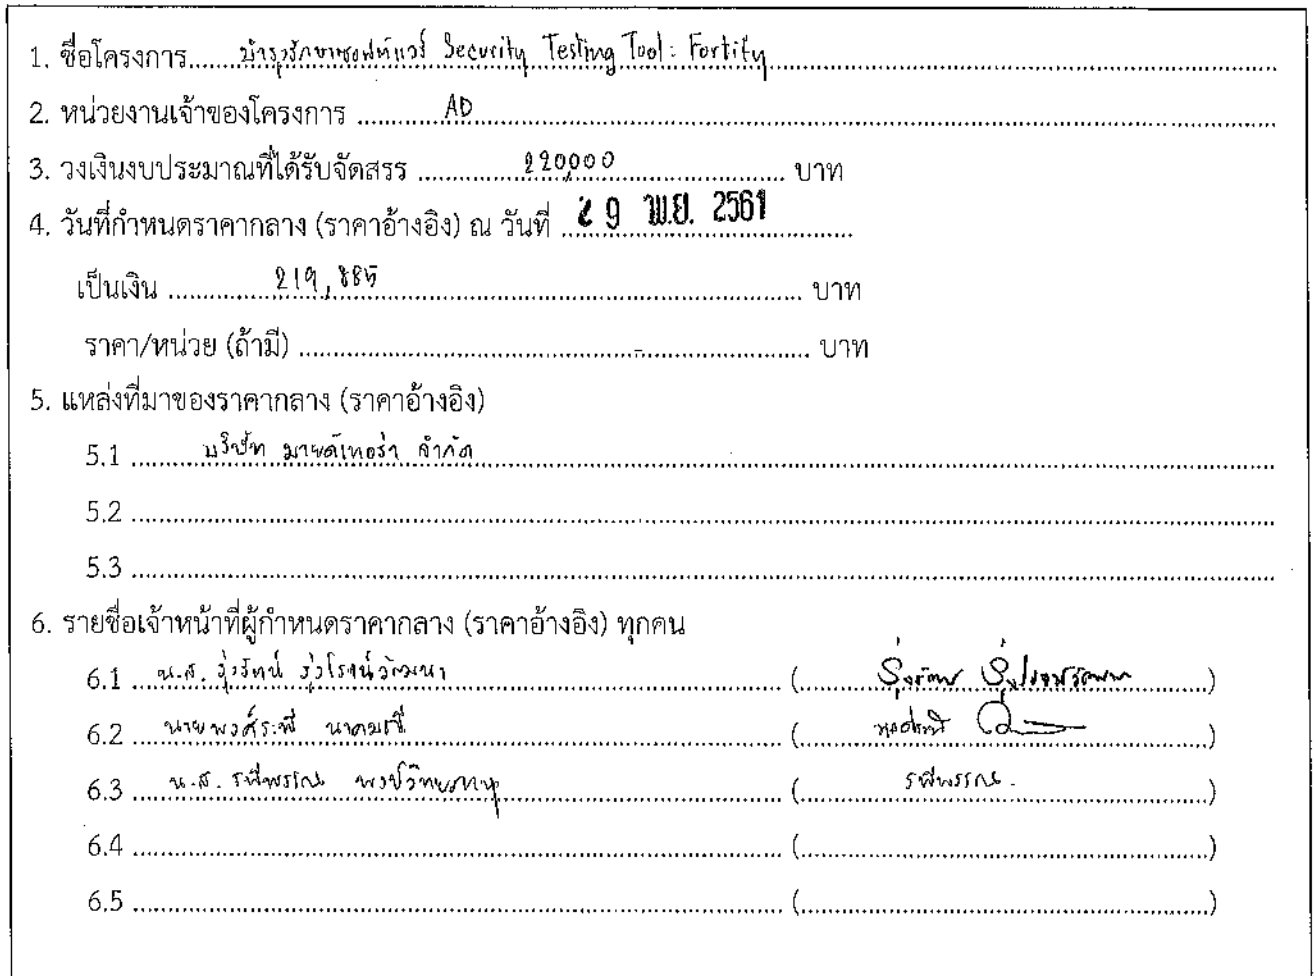 1. ชื่อโครงการ......บำรุงรักษาซอฟท์แวร์ Security Testing Tool : Fortify......
2. หน่วยงานเจ้าของโครงการ ......AD......
3. วงเงินงบประมาณที่ได้รับจัดสรร ......220,000...... บาท
4. วันที่กำหนดราคากลาง (ราคาอ้างอิง) ณ วันที่ ...29 พ.ย. 2561......
เป็นเงิน ......219,885...... บาท
ราคา/หน่วย (ถ้ามี) ......-...... บาท
5. แหล่งที่มาของราคากลาง (ราคาอ้างอิง)
5.1 ......บริษัท มายด์เทอร่า จำกัด......
5.2 ......
5.3 ......
6. รายชื่อเจ้าหน้าที่ผู้กำหนดราคากลาง (ราคาอ้างอิง) ทุกคน
6.1 น.ส. รุ่งรัตน์ รุ่งโรจน์วัฒนา ...... (......)
6.2 นายพงศ์ระพี ...... (......)
6.3 น.ส. รพีพรรณ ...... (......รพีพรรณ......)
6.4 ...... (......)
6.5 ...... (......)